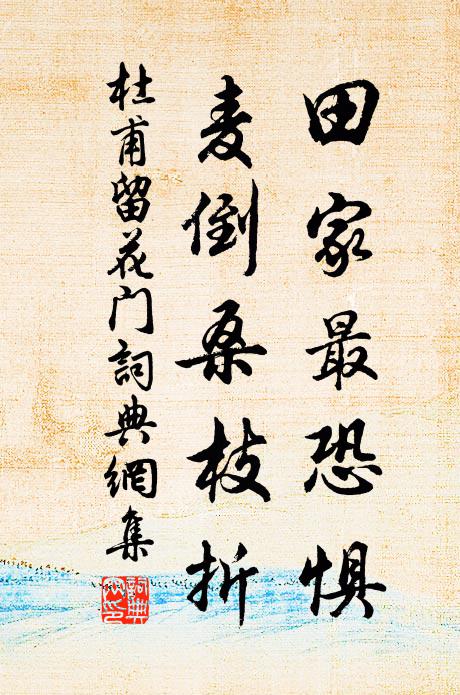 田家最恐惧
麦倒桑枝折
杜甫留花门詞典網集
詞典